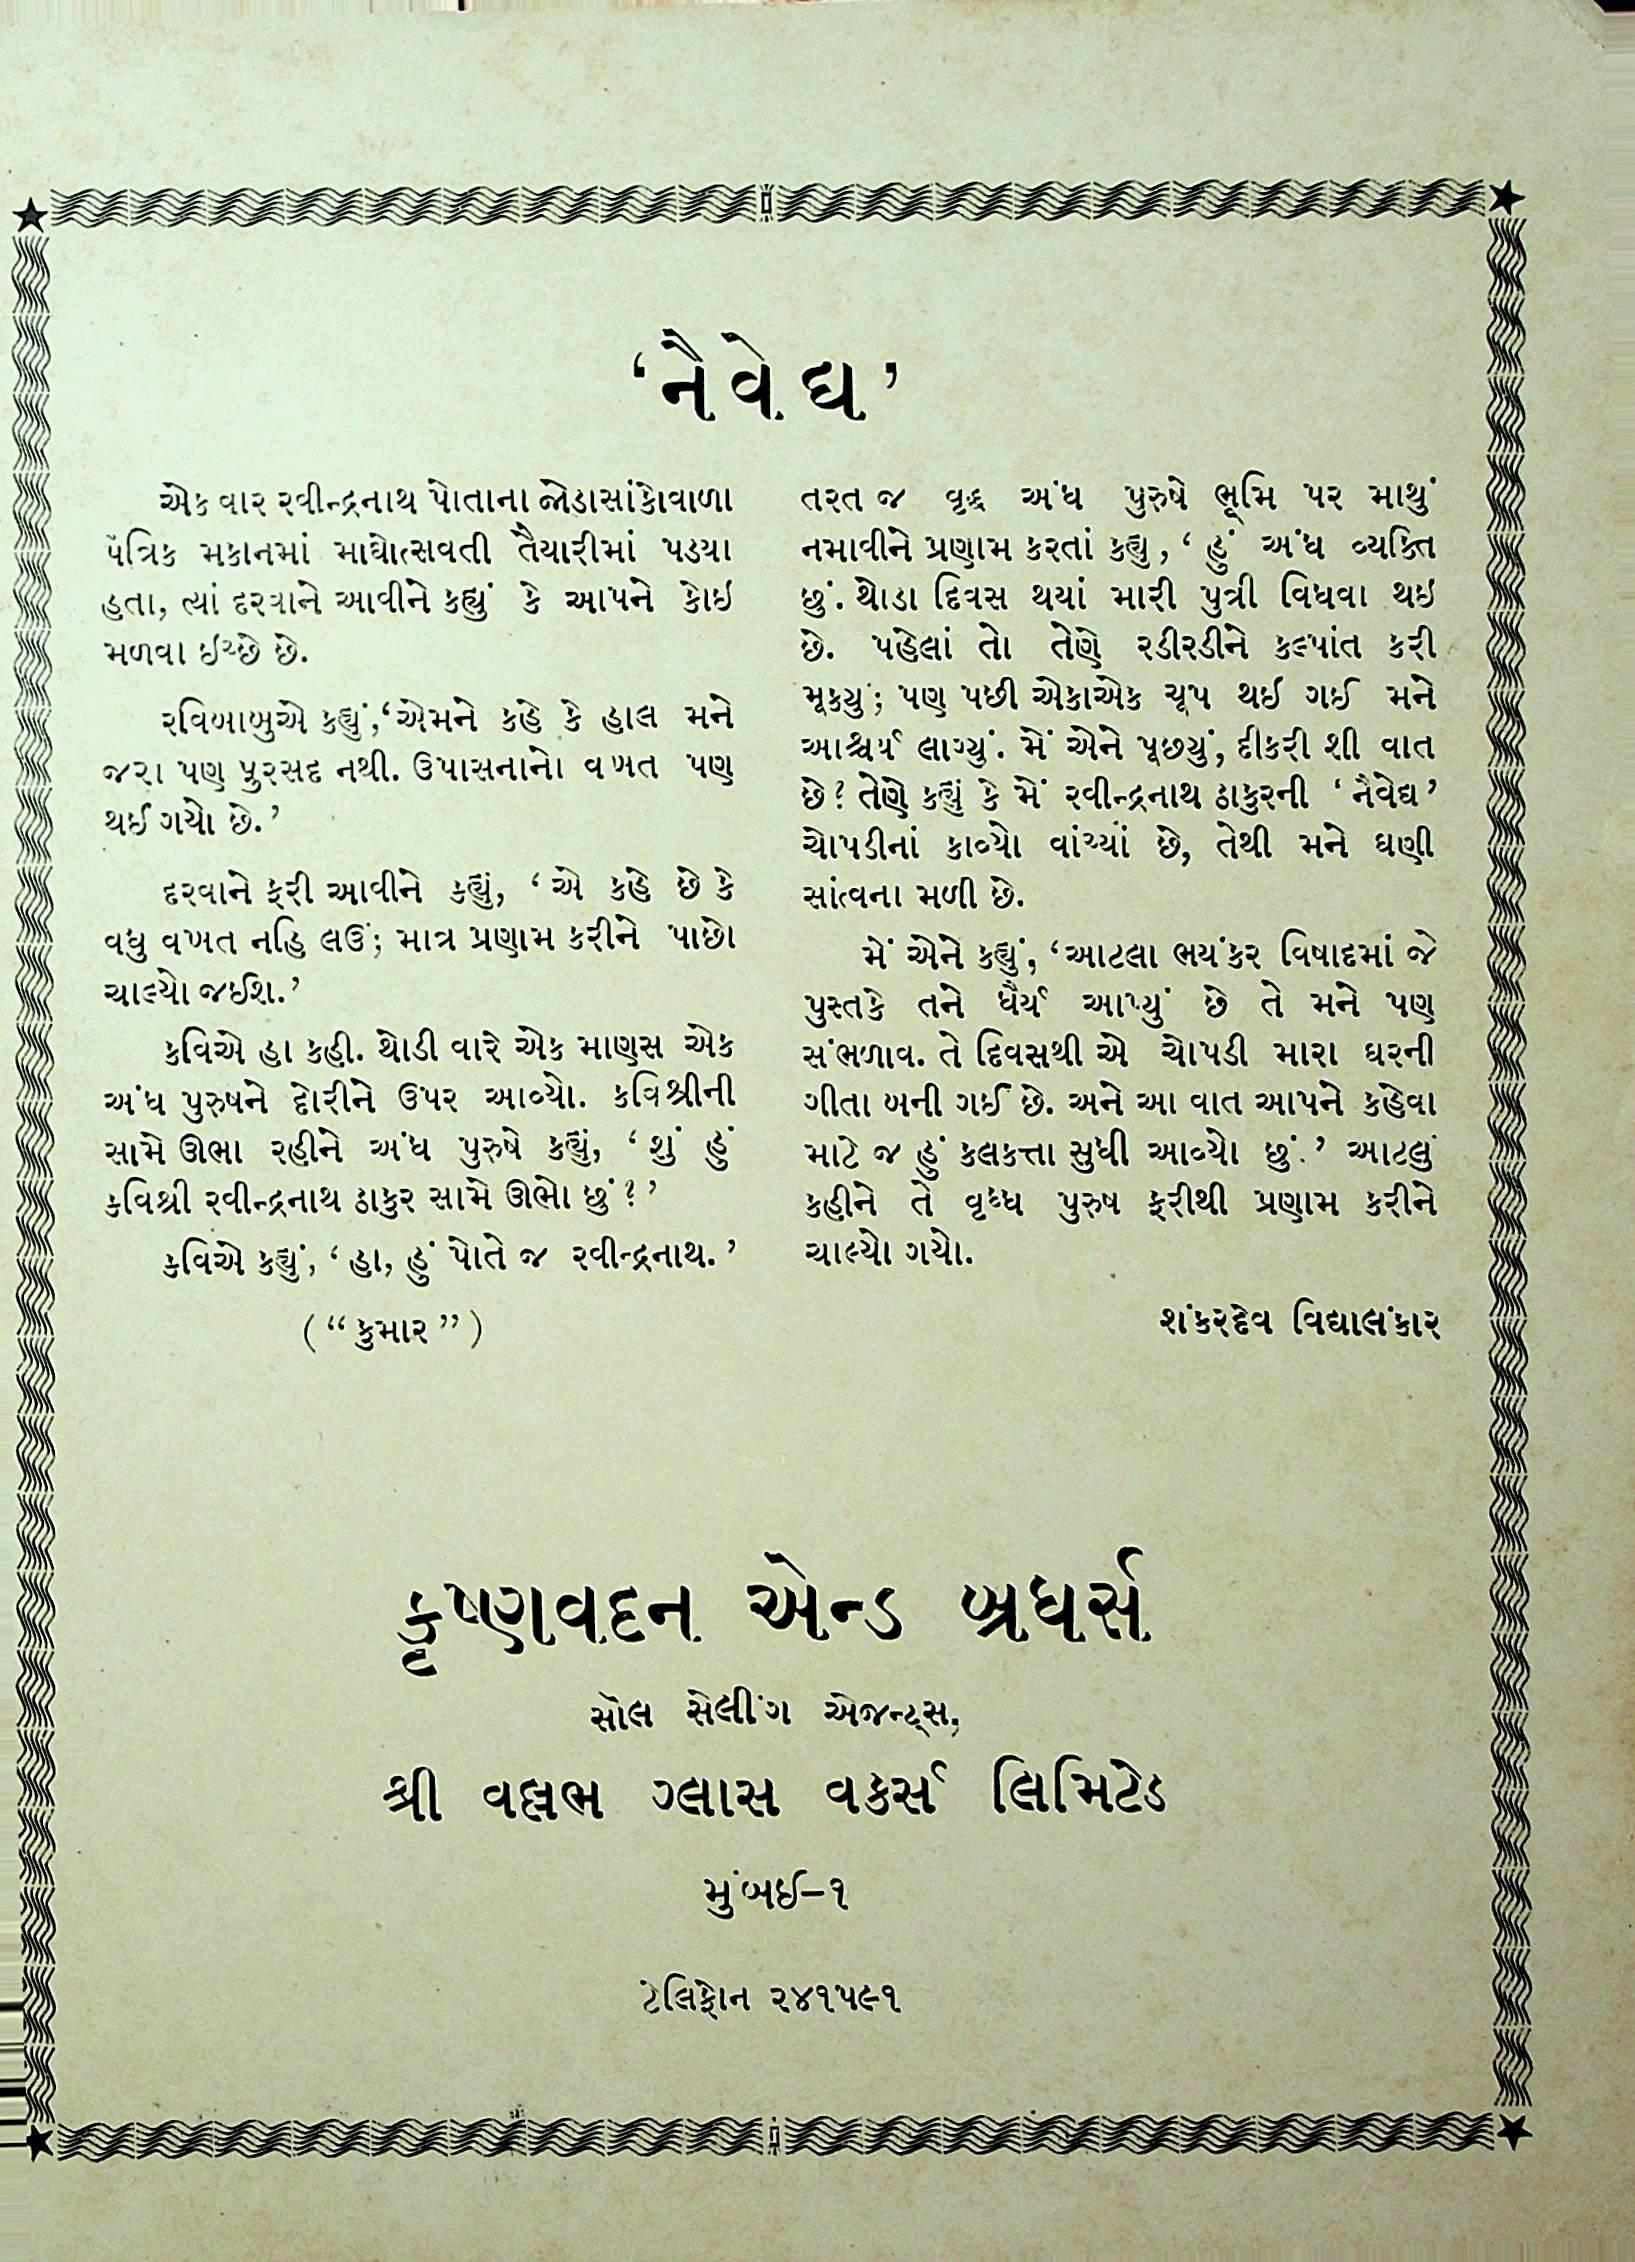 ‘નૈવેદ્ય’
એક વાર રવીન્દ્રનાથ પોતાના જોડાસાંકોવાળા
પૈત્રિક મકાનમાં માઘોત્સવતી તૈયારીમાં પડયા
હતા, ત્યાં દરવાને આવીને કહ્યું કે આપને કોઇ
મળવા ઇચ્છે છે.
રવિબાબુએ કહ્યું,‘એમને કહે કે હાલ મને
જરા પણ પુરસદ નથી. ઉપાસનાનો વખત પણ
થઈ ગયો છે.’
દરવાને ફરી આવીને કહ્યું, ‘એ કહે છે કે
વધુ વખત નહિ લઉં; માત્ર પ્રણામ કરીને પાછો
ચાલ્યો જઈશ.’
કવિએ હા કહી. થોડી વારે એક માણસ એક
અંધ પુરુષને દોરીને ઉપર આવ્યો. કવિશ્રીની
સામે ઊભા રહીને અંધ પુરુષે કહ્યું, ‘શું હું
કવિશ્રી રવીન્દ્રનાથ ઠાકુર સામે ઊભો છું?’
કવિએ કહ્યું, ‘હા, હું પોતે જ રવીન્દ્રનાથ.’
(“કુમાર”)
તરત જ વૃદ્ધ અંધ પુરુષે ભૂમિ પર માથું
નમાવીને પ્રણામ કરતાં કહ્યુ, ‘હું અંધ વ્યક્તિ
છું. થોડા દિવસ થયાં મારી પુત્રી વિધવા થઇ
છે. પહેલાં તો તેણે રડીરડીને કલ્પાંત કરી
મૂક્યું; પણ પછી એકાએક ચૂપ થઈ ગઈ મને
આશ્ચર્ય લાગ્યું. મેં એને પૂછયું, દીકરી શી વાત
છે? તેણે કહ્યું કે મેં રવીન્દ્રનાથ ઠાકુરની ‘નૈવેદ્ય’
ચોપડીનાં કાવ્યો વાંચ્યાં છે, તેથી મને ઘણી
સાંત્વના મળી છે.
મેં એને કહ્યું, ‘આટલા ભયંકર વિષાદમાં જે
પુસ્તકે તને ધૈર્ય આપ્યું છે તે મને પણ
સંભળાવ. તે દિવસથી એ ચોપડી મારા ઘરની
ગીતા બની ગઈ છે. અને આ વાત આપને કહેવા
માટે જ હું કલકત્તા સુધી આવ્યો છું.’ આટલું
કહીને તે વૃધ્ધ પુરુષ ફરીથી પ્રણામ કરીને
ચાલ્યો ગયો.
શંકરદેવ વિદ્યાલંકાર
કૃષ્ણવદન એન્ડ બ્રધર્સ
સૉલ સેલીંગ એજન્ટ્સ,
શ્રી વલ્લભ ગ્લાસ વર્કસ લિમિટેડ
મુંબઈ–૧
ટેલિફોન ૨૪૧૫૯૧